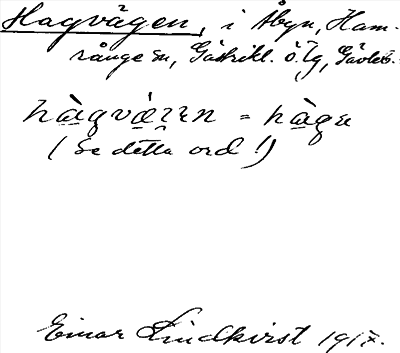 Hagvägen, i Åbyn, Ham-
rånge sn, Gästrikl. ö. tg, Gävleb.
hàgvä́gen = hàgen
(Se detta ord!)
Einar Lindkvist 1917.